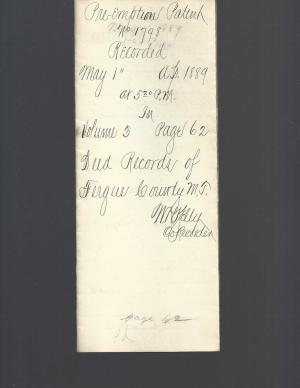 Pre-emption Patent
No. 1798
Recorded
May 1" A.D. 1889
at 5 20 P.M.
In
Volume 3 Page 62
Deed Records of
Fergus County M.T.
Co Recorder
Page 62